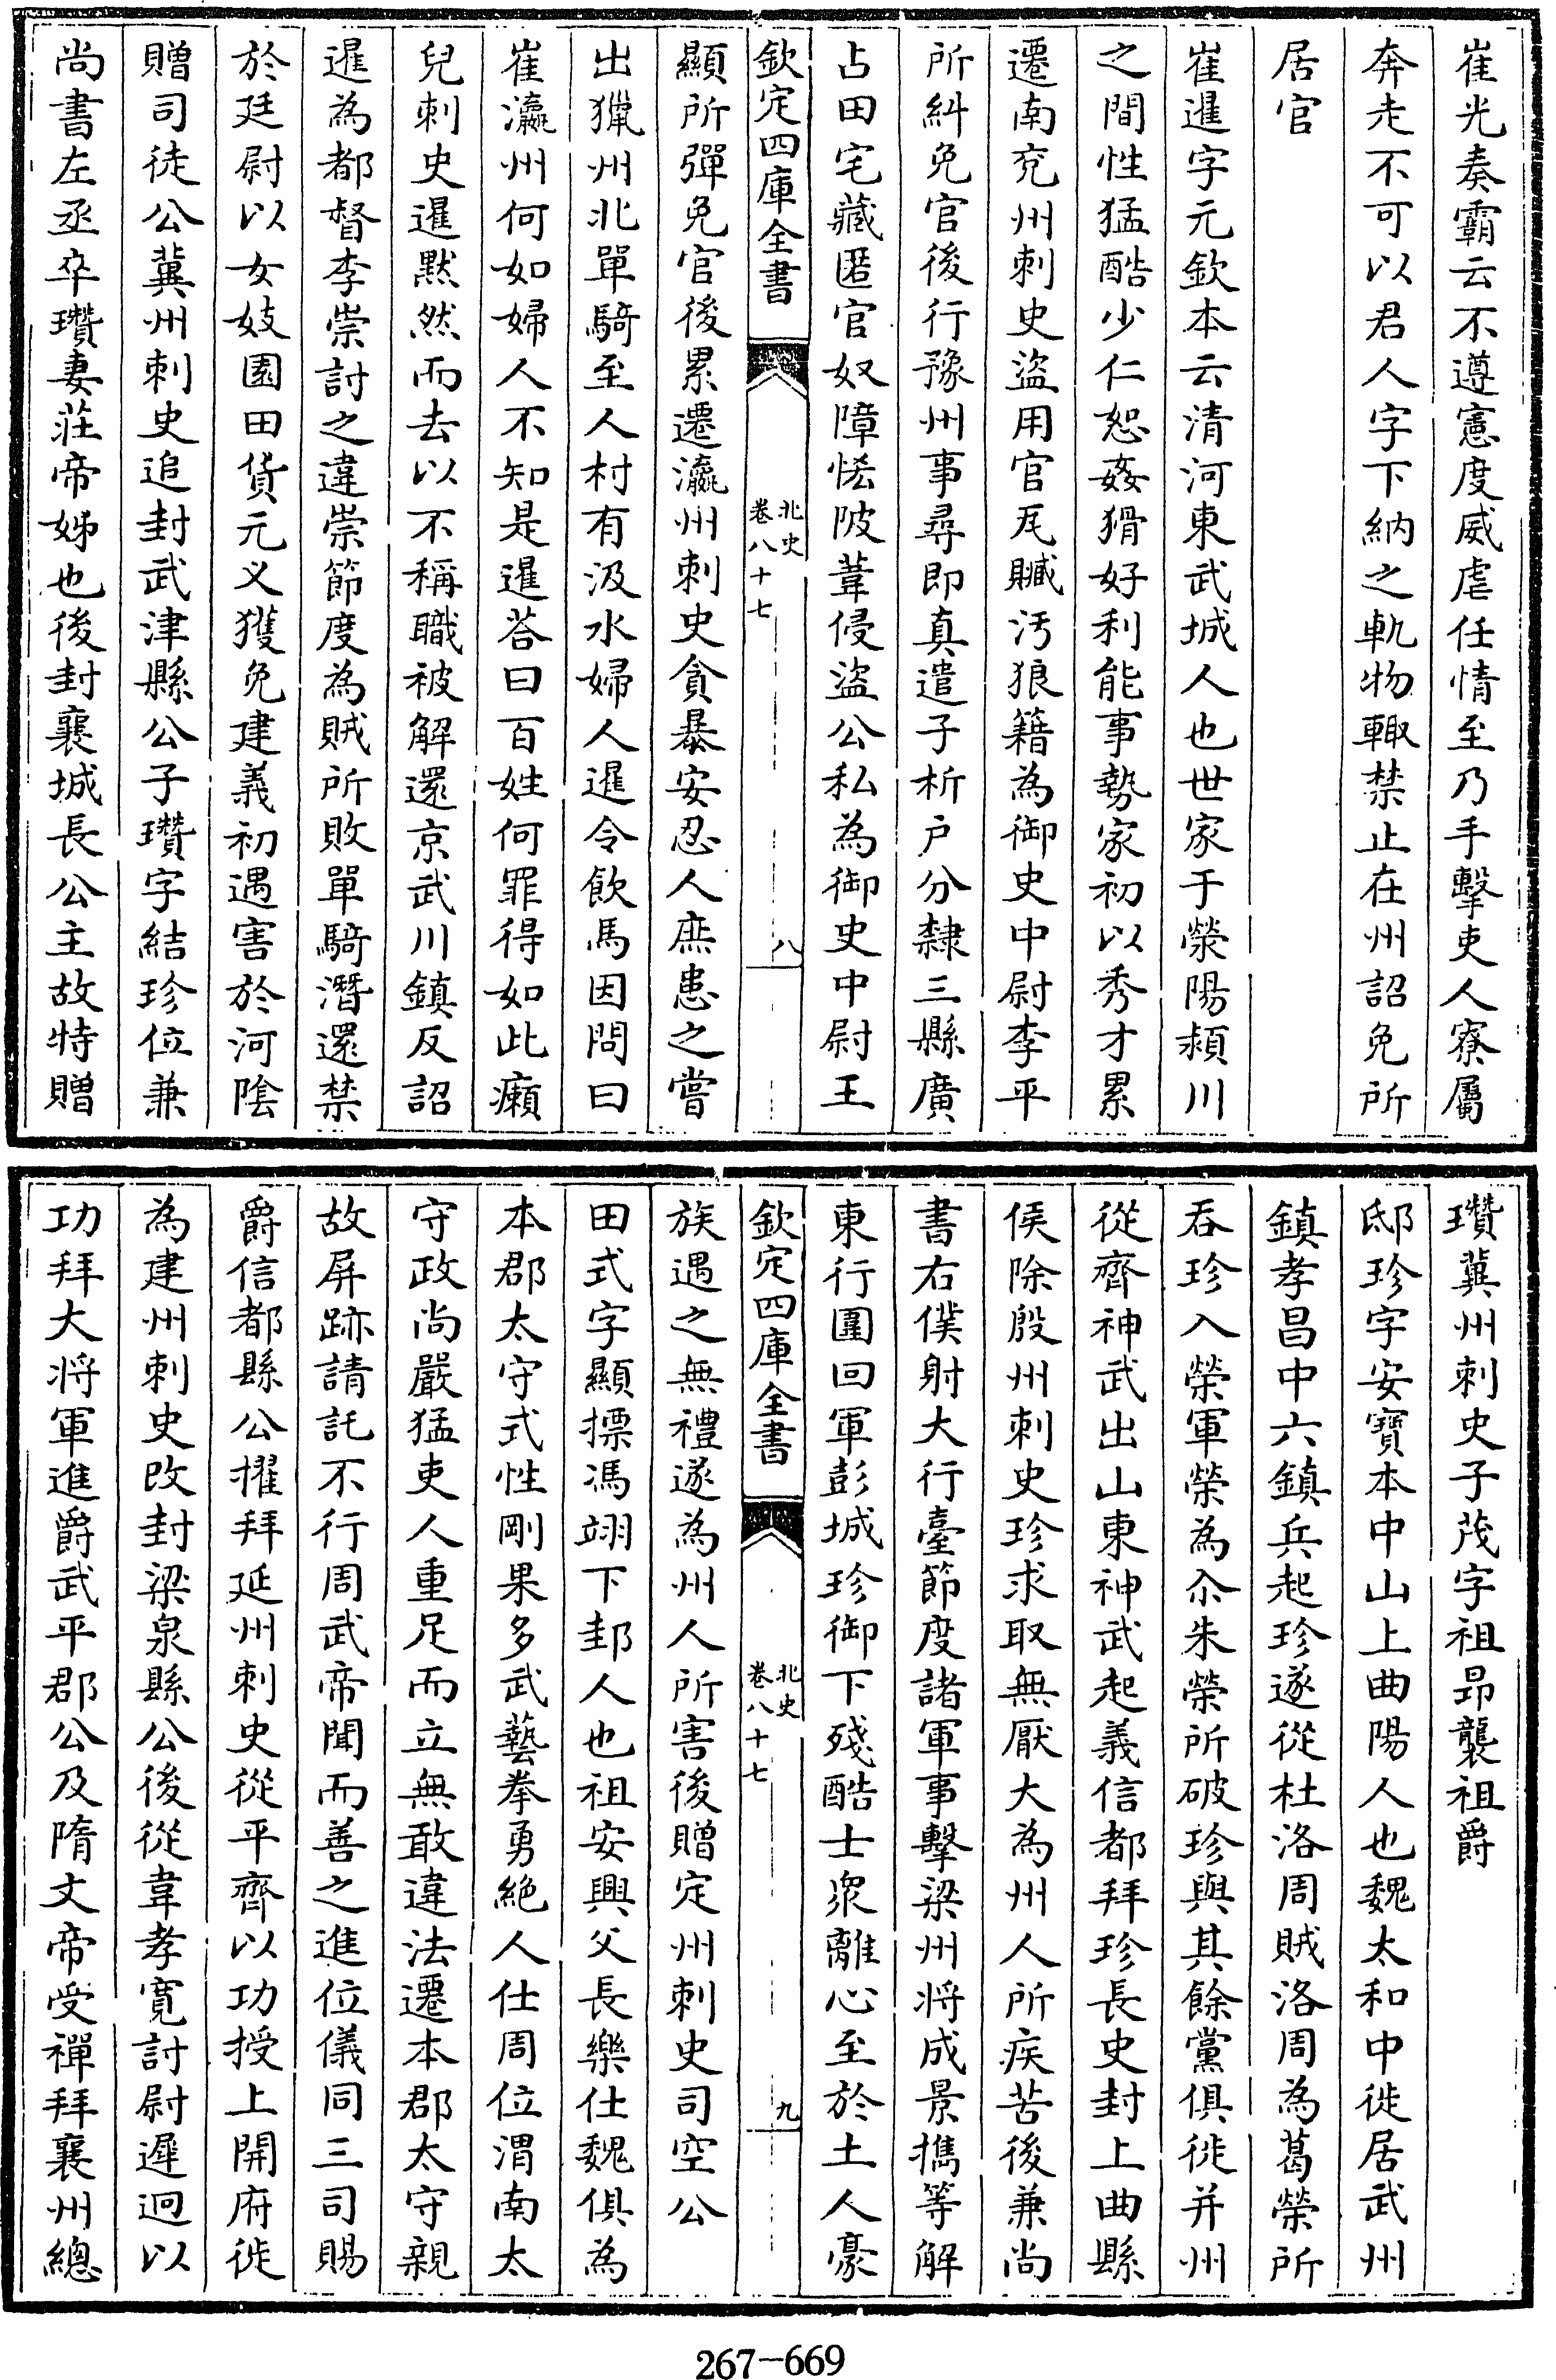 崔光奏霸云不遵憲度威虐任情至乃手擊吏人寮屬
奔走不可以君人字下納之軌物輙禁止在州詔免所
居官
崔暹字元欽本云清河東武城人也世家于滎陽潁川
之間性猛酷少仁恕姦猾好利能事勢家初以秀才累
遷南兖州刺史盜用官瓦贓汚狼籍為御史中尉李平
所糾免官後行豫州事尋即真遣子析户分隸三縣廣
占田宅藏匿官奴障恡陂葦侵盜公私為御史中尉王
欽定四庫全書
北史
卷八十七
八
顯所彈免官後累遷瀛州刺史貪暴安忍人庶患之嘗
出獵州北單騎至人村有汲水婦人暹令飲馬因問曰
崔瀛州何如婦人不知是暹荅曰百姓何罪得如此癩
兒刺史暹默然而去以不稱職被解還京武川鎮反詔
暹為都督李崇討之違崇節度為賊所敗單騎潛還禁
於廷尉以女妓園田貨元义獲免建義初遇害於河陰
贈司徒公冀州刺史追封武津縣公子瓚字結珍位兼
尚書左丞卒瓚妻莊帝姊也後封襄城長公主故特贈
瓚冀州刺史子茂字祖昂襲祖爵
邸珍字安寶本中山上曲陽人也魏太和中徙居武州
鎮孝昌中六鎮兵起珍遂從杜洛周賊洛周為葛榮所
吞珍入榮軍榮為尒朱榮所破珍與其餘黨俱徙并州
從齊神武出山東神武起義信都拜珍長史封上曲縣
侯除殷州刺史珍求取無厭大為州人所疾苦後兼尚
書右僕射大行臺節度諸軍事擊梁州將成景攜等解
東行圍回軍彭城珍御下殘酷士眾離心至於土人豪
欽定四庫全書
北史
卷八十七
九
族遇之無禮遂為州人所害後贈定州刺史司空公
田式字顯摽馮翊下邽人也祖安興父長樂仕魏俱為
本郡太守式性剛果多武藝拳勇絶人仕周位渭南太
守政尚嚴猛吏人重足而立無敢違法遷本郡太守親
故屏跡請託不行周武帝聞而善之進位儀同三司賜
爵信都縣公擢拜延州刺史從平齊以功授上開府徙
為建州刺史改封梁泉縣公後從韋孝寬討尉遲迥以
功拜大將軍進爵武平郡公及隋文帝受禪拜襄州總
267-669